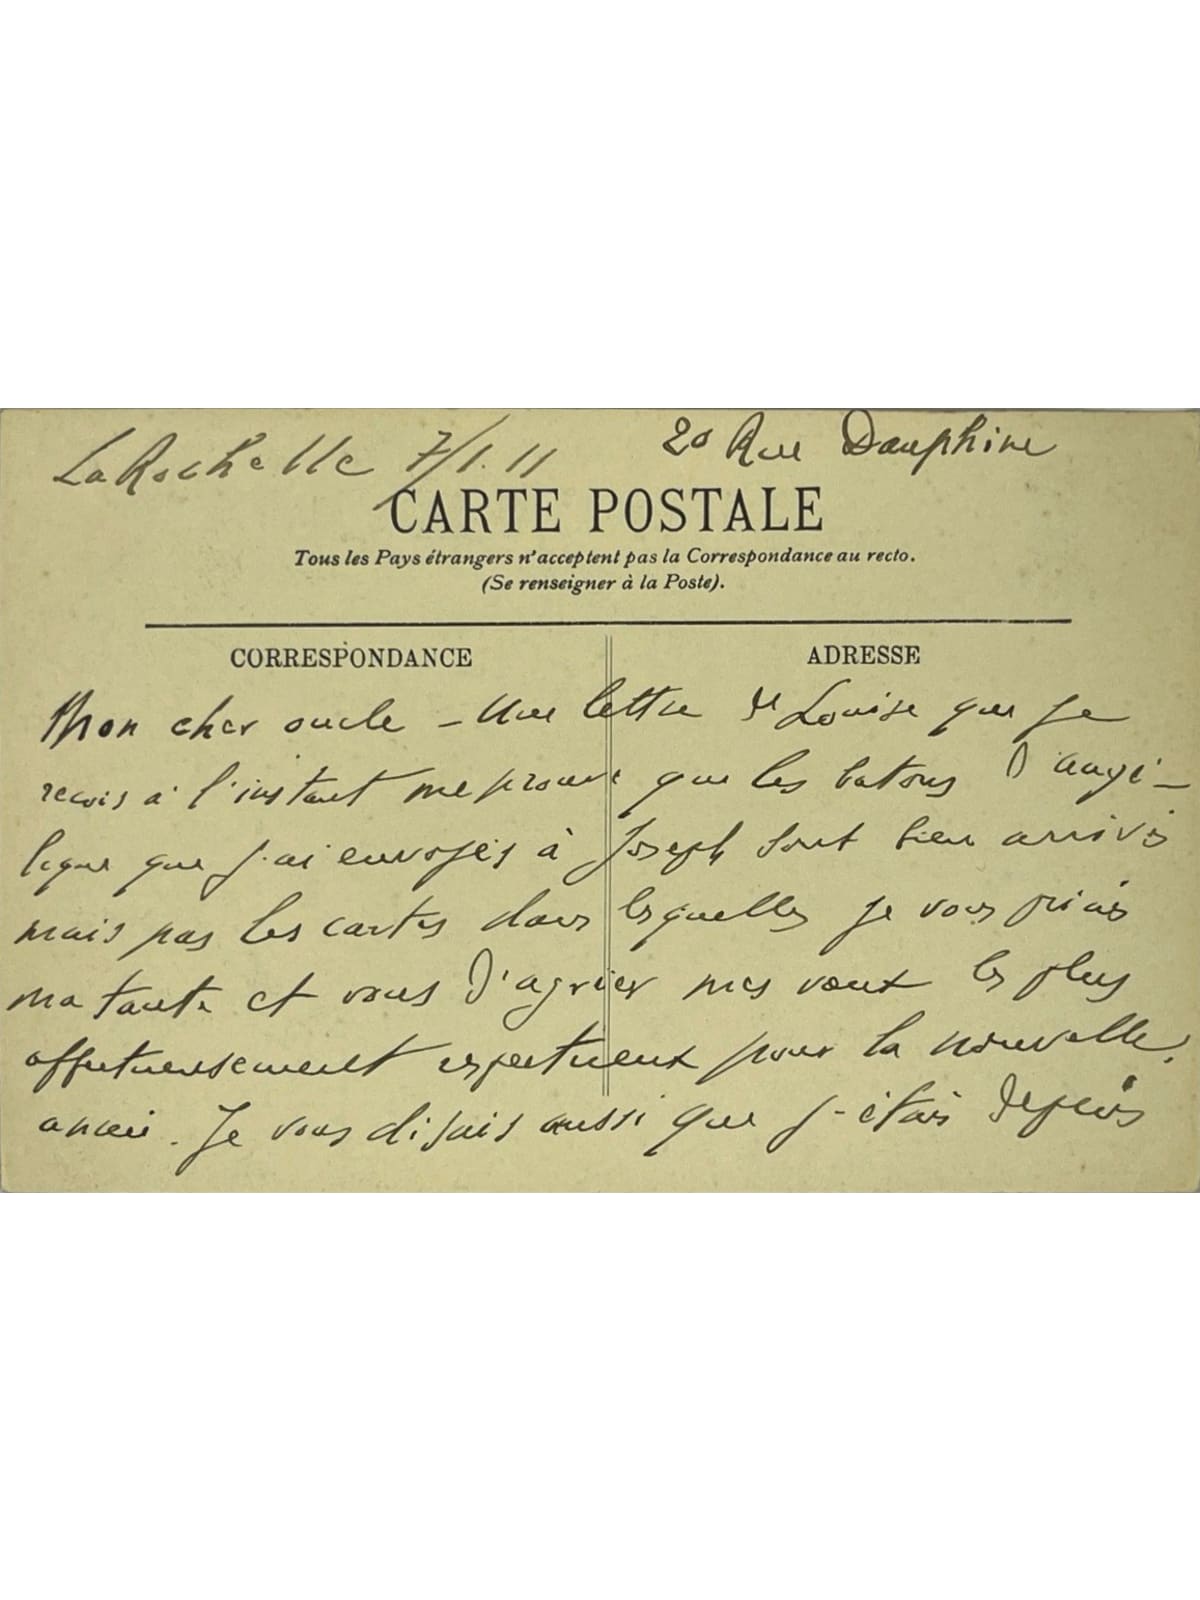 La Rochelle 7/1.11 20 Rue Dauphine
CARTE POSTALE
Tous les Pays étrangers n'acceptent pas la Correspondance au recto.
(Se renseigner à la Poste).
CORRESPONDANCE ADRESSE
Mon cher oncle – Une lettre de Louise que je
reçois à l'instant me prouve que les batons d'angé-
lique que j'ai envoyés à Joseph sont bien arrivés
mais pas les cartes dans lesquelles je vous priais
ma tante et vous d'agréer mes vœux les plus
affectueusement respectueux pour la nouvelle
année. Je vous disais aussi que j'étais depuis